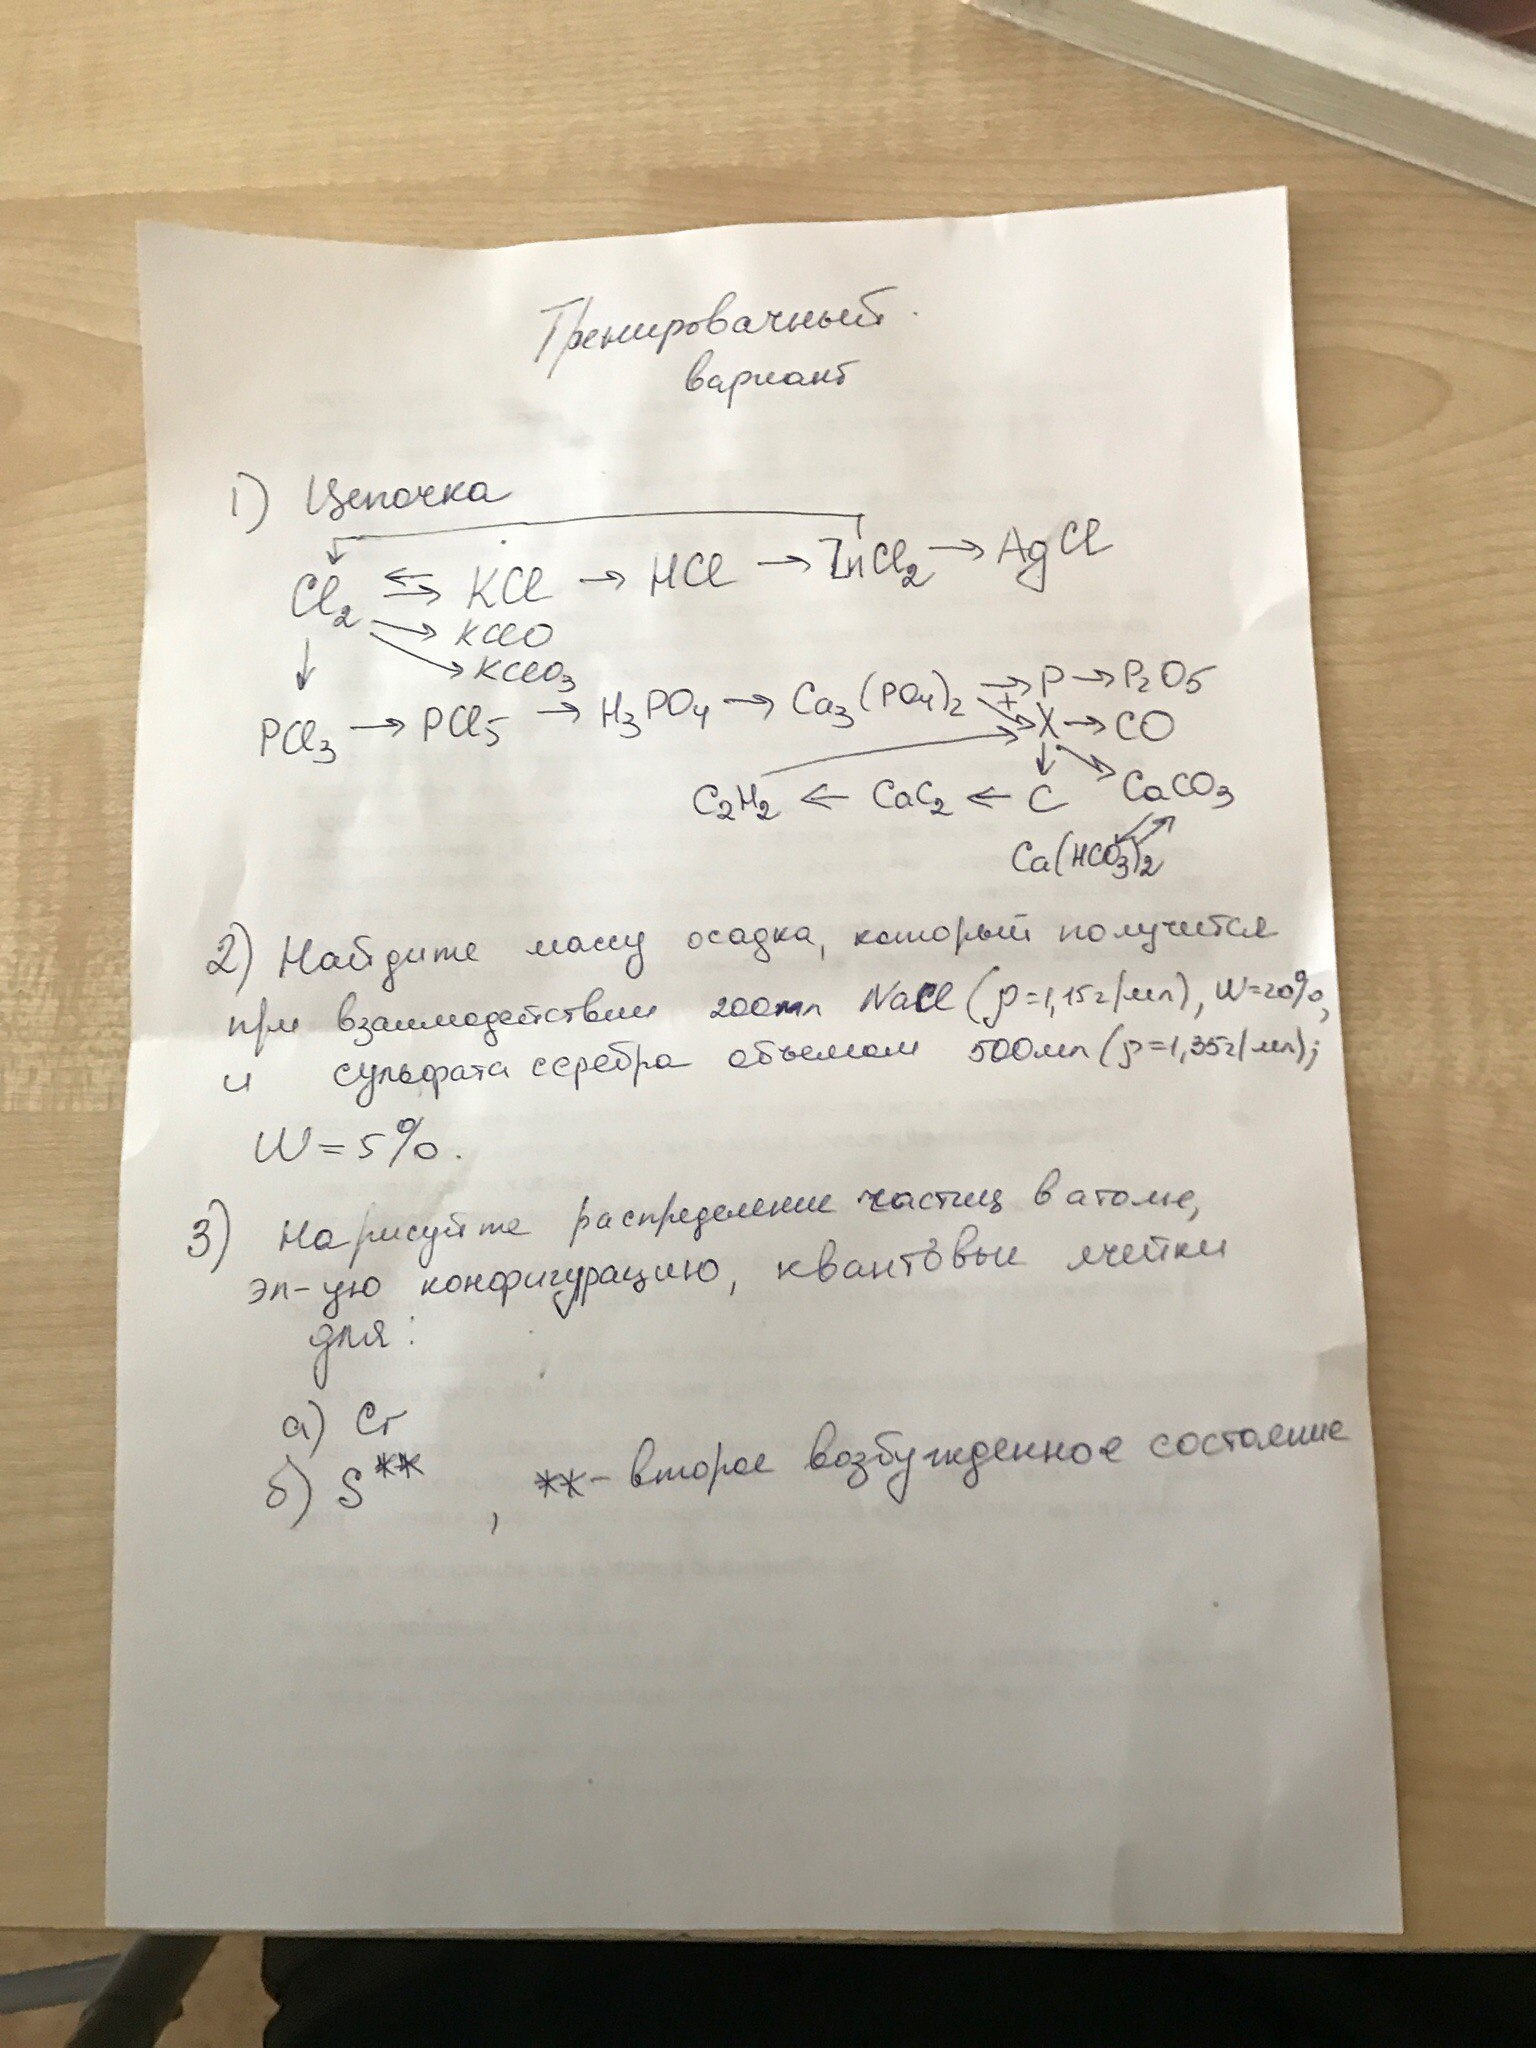 Тренировачный
вариант
1) Цепочка
Cl₂ ⇄ KCl → HCl → ZnCl₂ → AgCl
→ KClO
→ KClO₃
↓
PCl₃ → PCl₅ → H₃PO₄ → Ca₃(PO₄)₂ → P → P₂O₅
+
X → CO
C₂H₂ ← CaC₂ ← C CaCO₃
Ca(HCO₃)₂
2) Найдите массу осадка, который получится
при взаимодействии 200мл NaCl (ρ=1,15г/мл), W=20%,
и сульфата серебра объемом 500мл (ρ=1,35г/мл);
W=5%.
3) Нарисуйте распределение частиц в атоме,
эл-ую конфигурацию, квантовые ячейки
для:
а) Cr
б) S** , **- второе возбужденное состояние